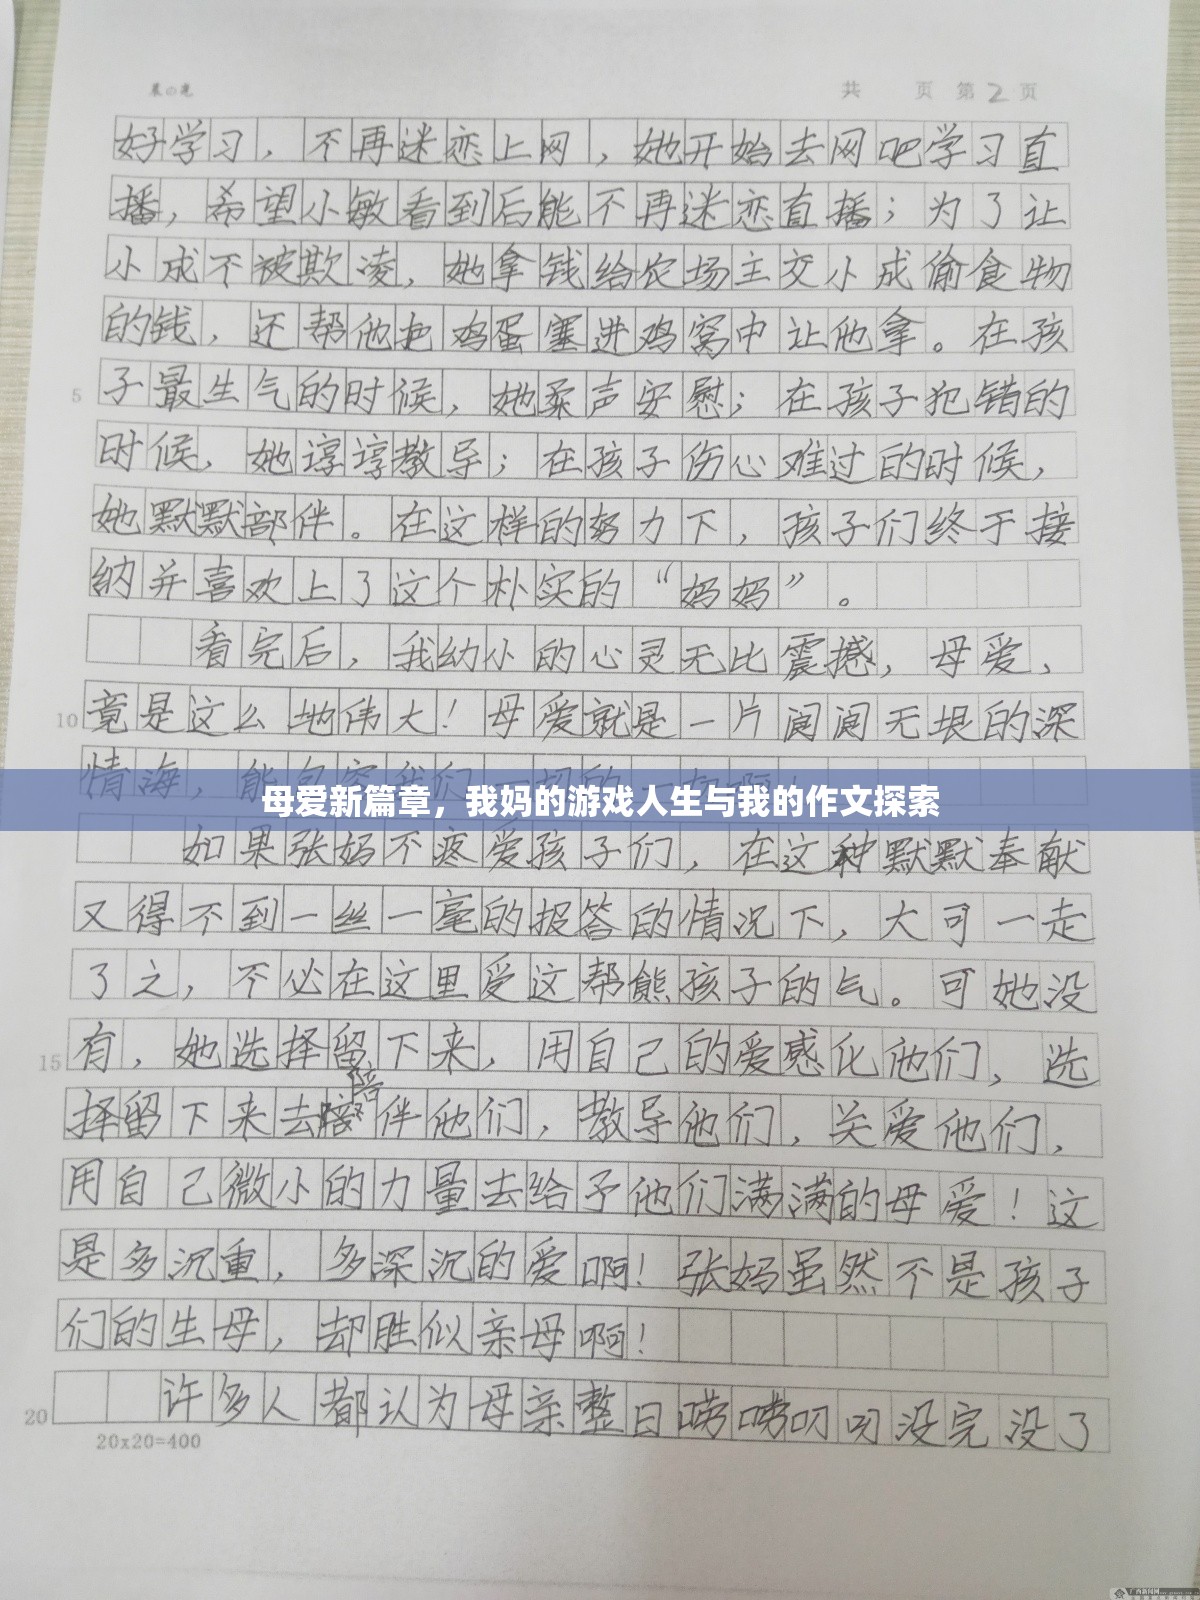 晨の光
共 页 第2页
好学习，不再迷恋上网，她开始去网吧学习直
播，希望小敏看到后能不再迷恋直播；为了让
小成不被欺凌，她拿钱给农场主交小成偷食物
的钱，还帮他把鸡蛋塞进鸡窝中让他拿。在孩
5 子最生气的时候，她柔声安慰；在孩子犯错的
时候，她谆谆教导；在孩子伤心难过的时候，
她默默部伴。在这样的努力下，孩子们终于接
纳并喜欢上了这个朴实的“妈妈”。
看完后，我幼小的心灵无比震撼，母爱，
10 竟是这么地伟大！母爱就是一片阔阔无垠的深
情海，能包容我们
母爱新篇章，我妈的游戏人生与我的作文探索
如果张妈不疼爱孩子们，在这种默默奉献
又得不到一丝一毫的报答的情况下，大可一走
了之，不必在这里受这帮熊孩子的气。可她没
15 有，她选择留下来，用自己的爱感化他们，选
择留下来去陪伴他们，教导他们，关爱他们，
用自己微小的力量去给予他们满满的母爱！这
是多沉重，多深沉的爱啊！张妈虽然不是孩子
们的生母，却胜似亲母啊！
20 许多人都认为母亲整日唠唠叨叨没完没了
20x20=400
广西新闻网